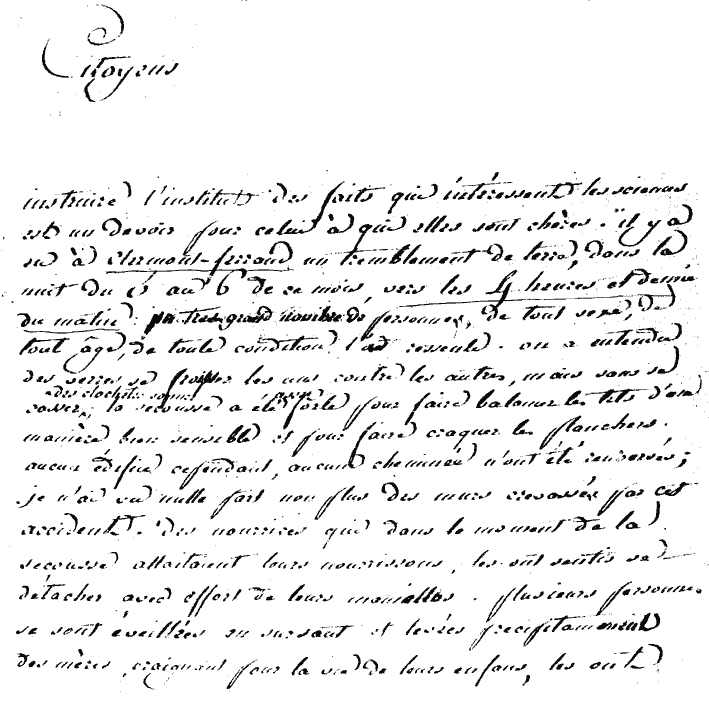 Citoyens
instruire l'institut des faits qui intéressent les sciences
est un devoir pour celui à qui elles sont chères. il y a
eu à clermont-ferrand un tremblement de terre, dans la
nuit du 5 au 6 de ce mois, vers les 4 heures et demie
du matin. un tres grand nombre de personnes, de tout sexe, de
tout âge, de toute condition l'a ressentie. on a entendu
des verres se froisser les uns contre les autres, mais sans se
des clochettes sonner
casser, la secousse a été assez forte pour faire balancer les lits d'une
manière bien sensible et pour faire craquer les planchers.
aucun édifice cependant, aucune cheminée n'ont été renversés;
je n'ai vu nulle part non plus des murs crevassés par cet
accident. Des nourrices qui dans le moment de la
secousse allaitaient leurs nourrissons, les ont sentis se
détacher avec effort de leurs mamelles. plusieurs personnes
se sont éveillées en sursaut et levées precipitamment
des mères, craignant pour la vie de leurs enfans, les ont